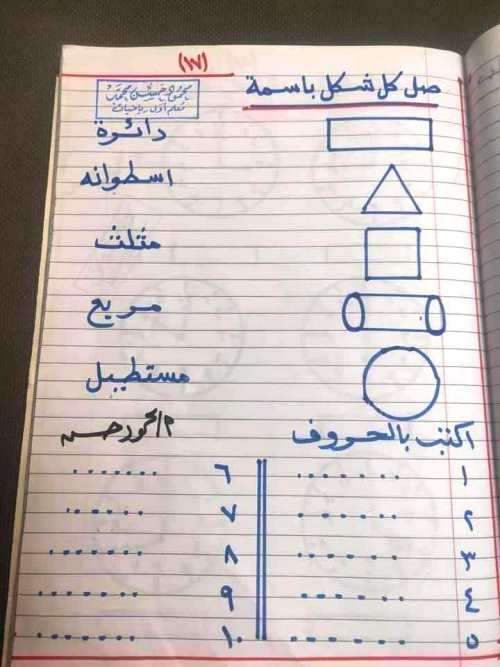 (١٧)
صل كل شكل باسمة
محمود حسن محمد
معلم أول رياضيات
دائرة
اسطوانه
مثلث
مربع
مستطيل
اكتب بالحروف
م/محمود حسن
١ ....... ٦ .......
٢ ...... ٧ ......
٣ ...... ٨ .......
٤ ...... ٩ .......
٥ ....... ١٠ .......